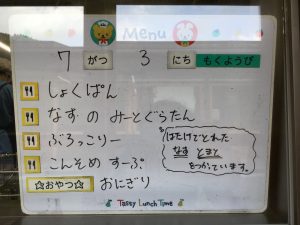 Menu
7 がつ 3 にち もくようび
しょくぱん
なす の みーとぐらたん
ぶろっこりー
こんそめ すーぷ
☆おやつ☆ おにぎり
はたけでとれた
なす とまと
をつかっています。
Tasty Lunch Time